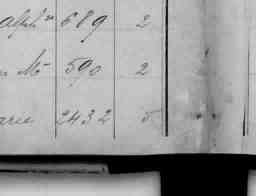 alph^se 689 2
n Mc 590 2
arie 2432 5